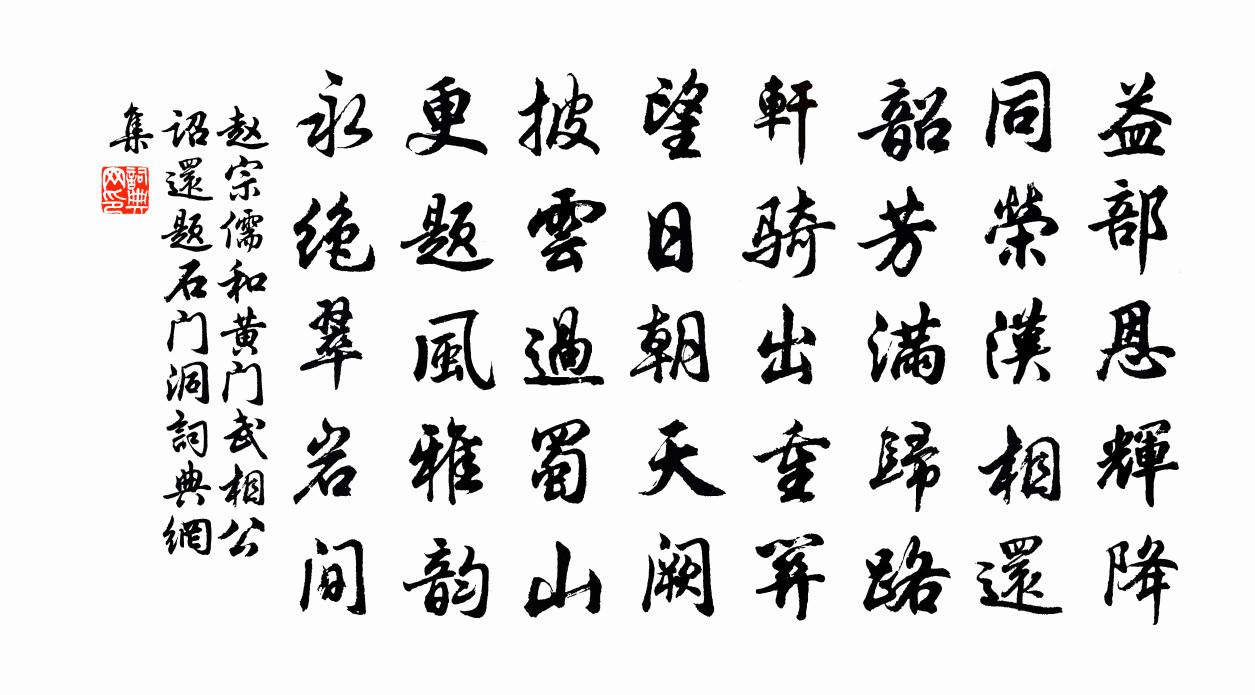 益部恩輝降
同榮漢相還
韶芳满歸路
軒骑出重關
望日朝天阙
披雲過蜀山
更题風雅韵
永绝翠岩间
赵宗儒和黄门武相公
诏還题石门洞詞典網
集
詞典
网印